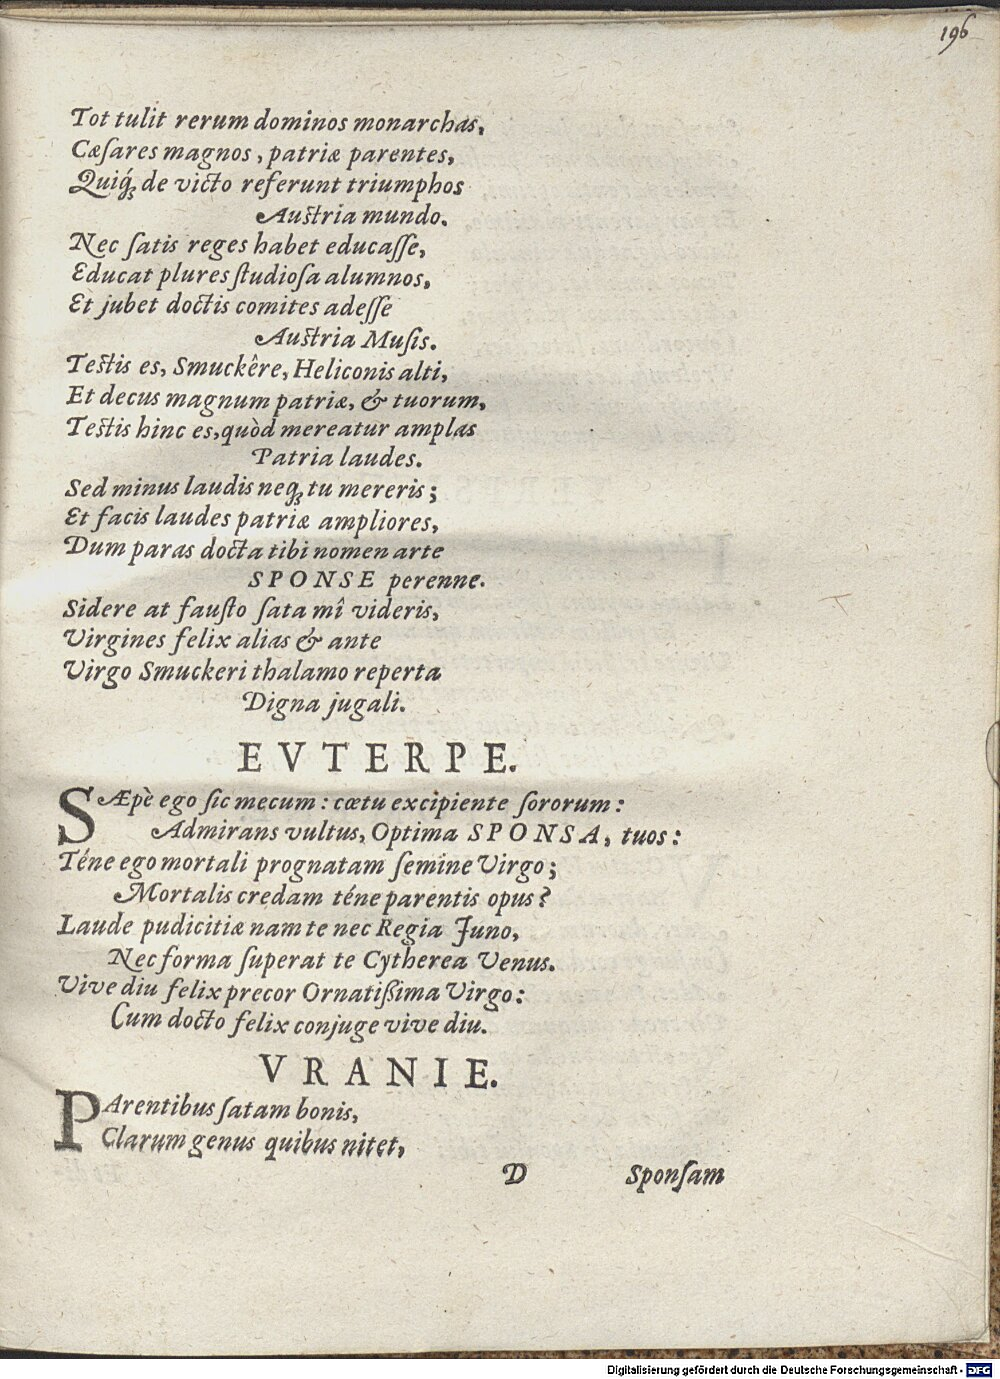 196
Tot tulit rerum dominos monarchas,
Cæſares magnos, patriæ parentes,
Quiq́; de victo referunt triumphos
Auſtria mundo.
Nec ſatis reges habet educaſſe,
Educat plures ſtudioſa alumnos,
Et jubet doctis comites adeſſe
Auſtria Muſis.
Teſtis es, Smuckêre, Heliconis alti,
Et decus magnum patriæ, & tuorum,
Teſtis hinc es, quòd mereatur amplas
Patria laudes.
Sed minus laudis neq; tu mereris;
Et facis laudes patriæ ampliores,
Dum paras docta tibi nomen arte
SPONSE perenne.
Sidere at fauſto ſata mî videris,
Virgines felix alias & ante
Virgo Smuckeri thalamo reperta
Digna jugali.
EVTERPE.
SÆpè ego ſic mecum: cœtu excipiente ſororum:
Admirans vultus, Optima SPONSA, tuos:
Téne ego mortali prognatam ſemine Virgo;
Mortalis credam téne parentis opus?
Laude pudicitiæ nam te nec Regia Juno,
Nec forma ſuperat te Cytherea Venus.
Vive diu felix precor Ornatiſſima Virgo:
Cum docto felix conjuge vive diu.
VRANIE.
PArentibus ſatam bonis,
Clarum genus quibus nitet,
D Sponſam
Digitalisierung gefördert durch die Deutsche Forschungsgemeinschaft - DFG